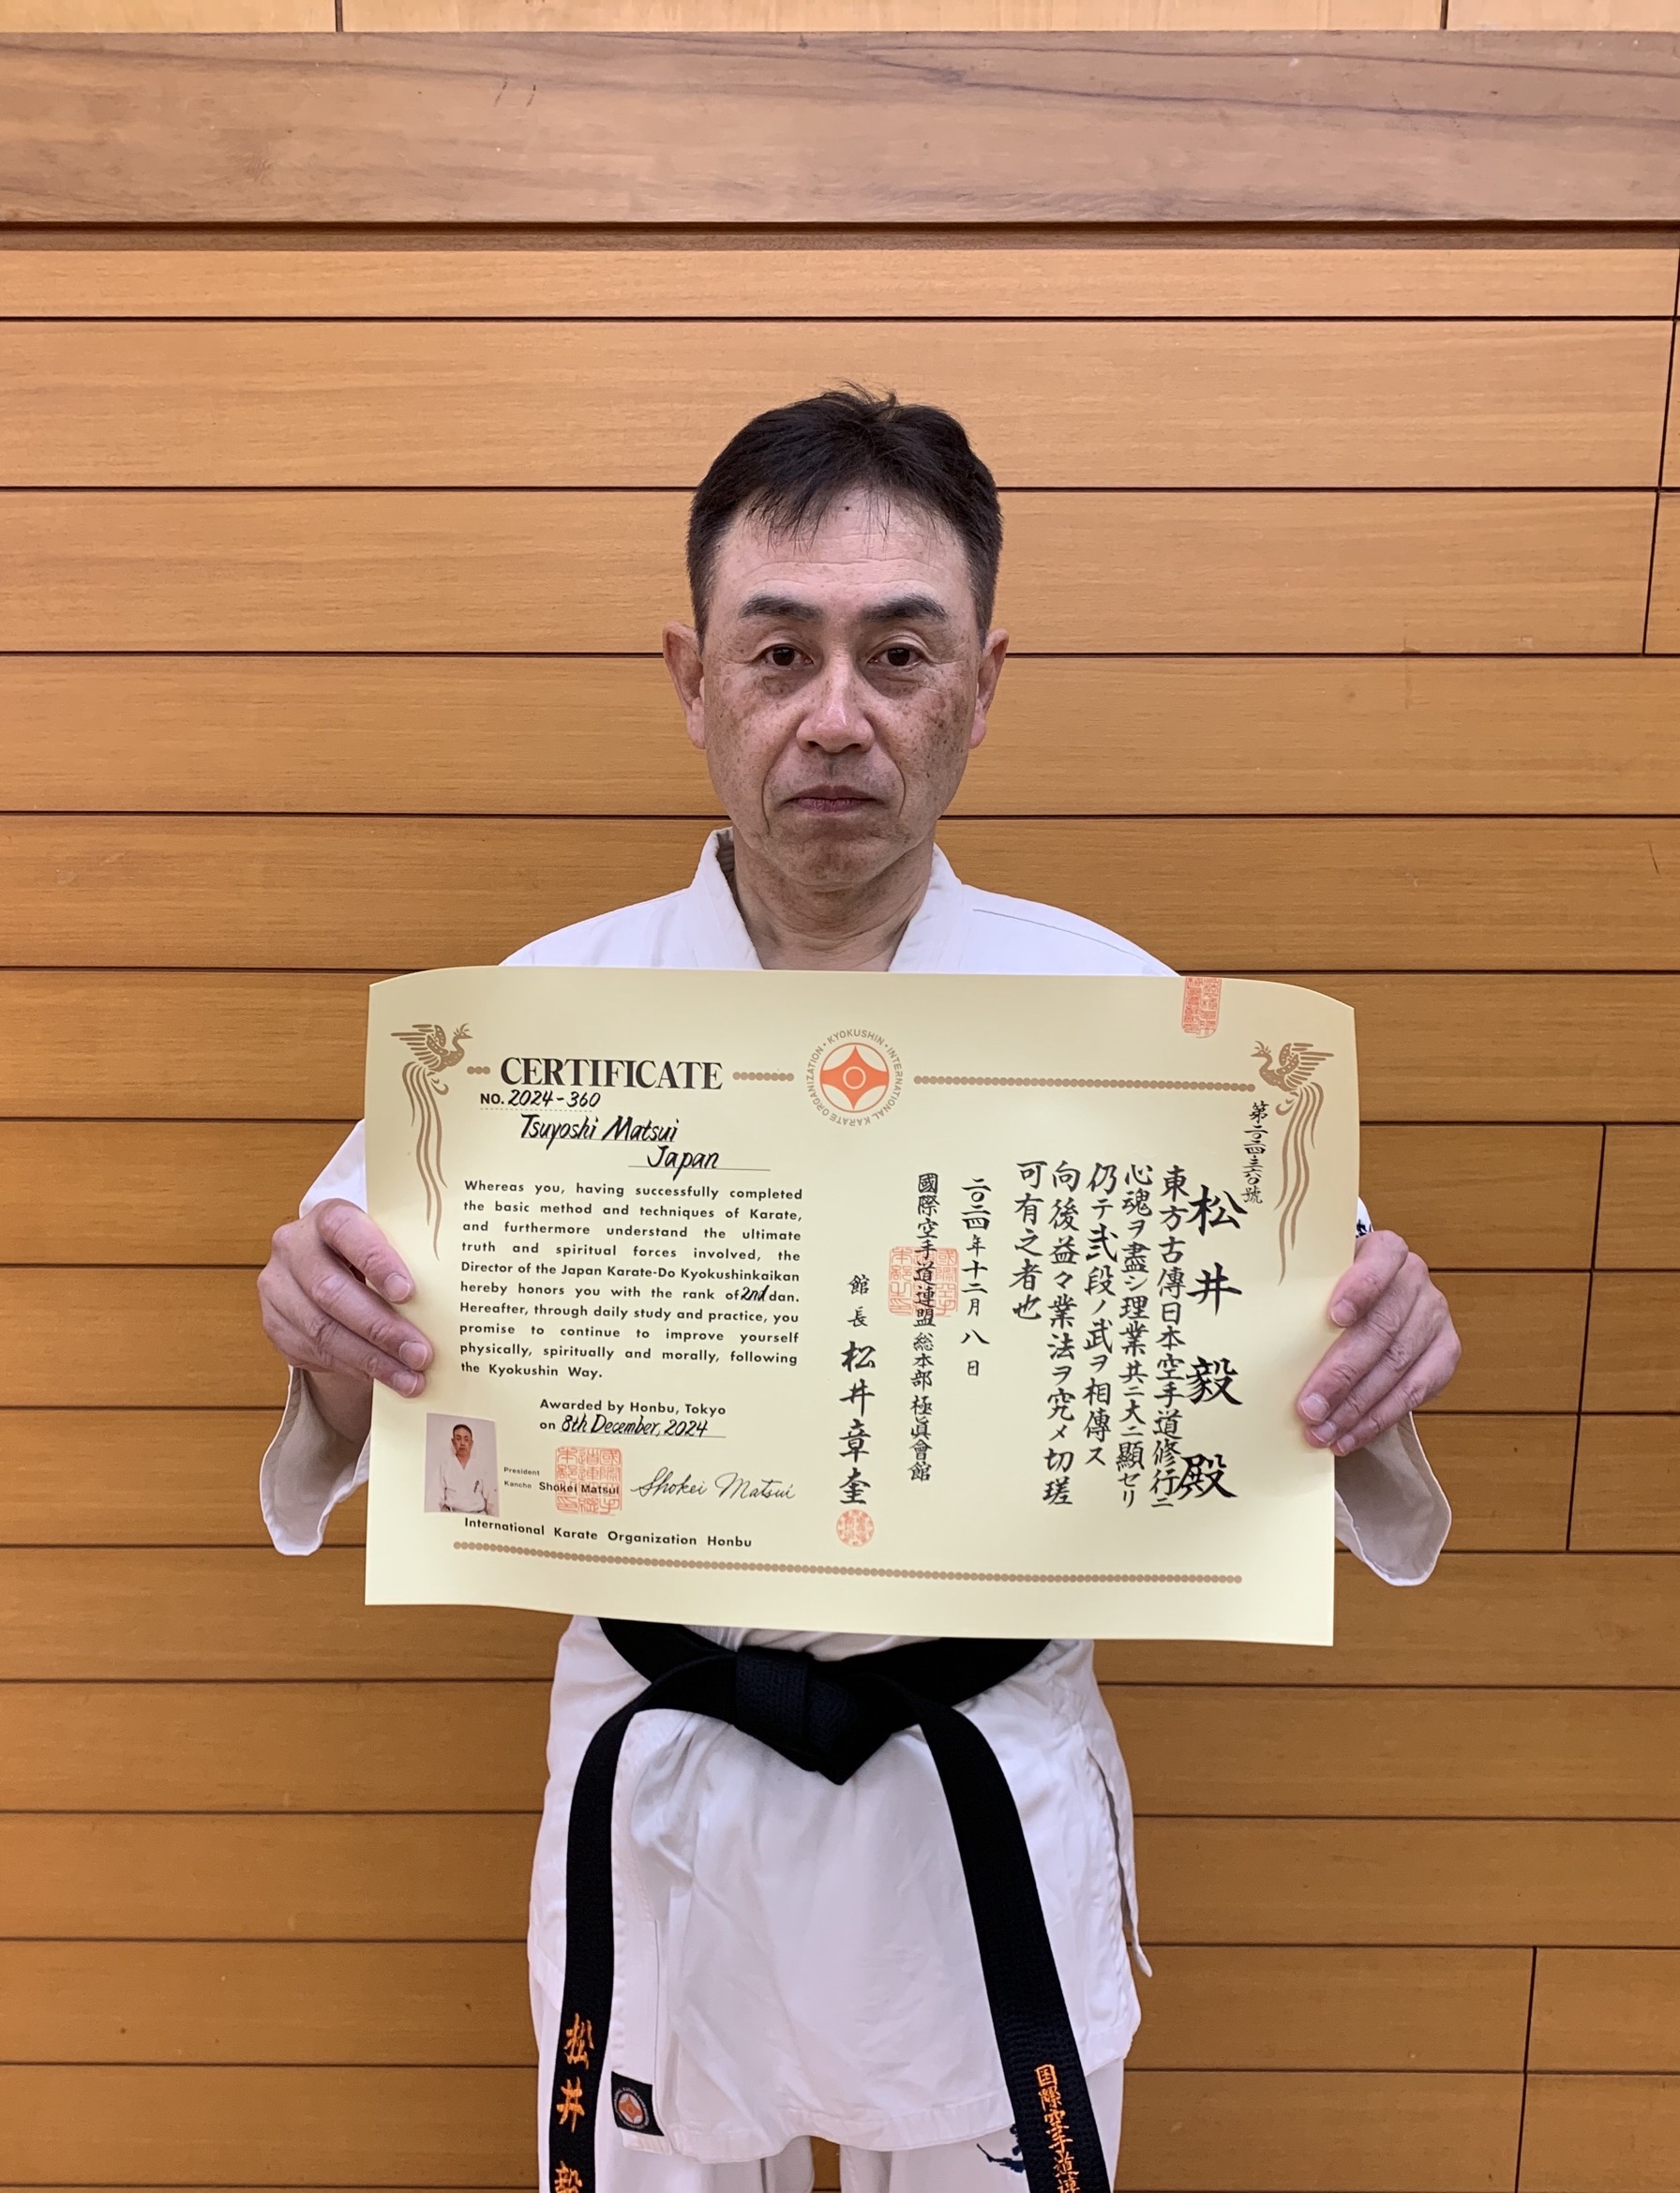 KYOKUSHIN・INTERNATIONAL KARATE ORGANIZATION・
CERTIFICATE
NO. 2024-360
Tsuyoshi Matsui
Japan
Whereas you, having successfully completed
the basic method and techniques of Karate,
and furthermore understand the ultimate
truth and spiritual forces involved, the
Director of the Japan Karate-Do Kyokushinkaikan
hereby honors you with the rank of 2nd dan.
Hereafter, through daily study and practice, you
promise to continue to improve yourself
physically, spiritually and morally, following
the Kyokushin Way.
Awarded by Honbu, Tokyo
on 8th December, 2024
President
Kancho Shokei Matsui
Shokei Matsui
International Karate Organization Honbu
第二〇二四-三六〇號
松井毅殿
東方古傳日本空手道修行ニ
心魂ヲ盡シ理業共ニ大ニ顯セリ
仍テ弐段ノ武ヲ相傳ス
向後益々業法ヲ究メ切瑳
可有之者也
二〇二四年十二月八日
國際空手道連盟 総本部 極眞會館
館長 松井章奎
松井毅
国際空手道連